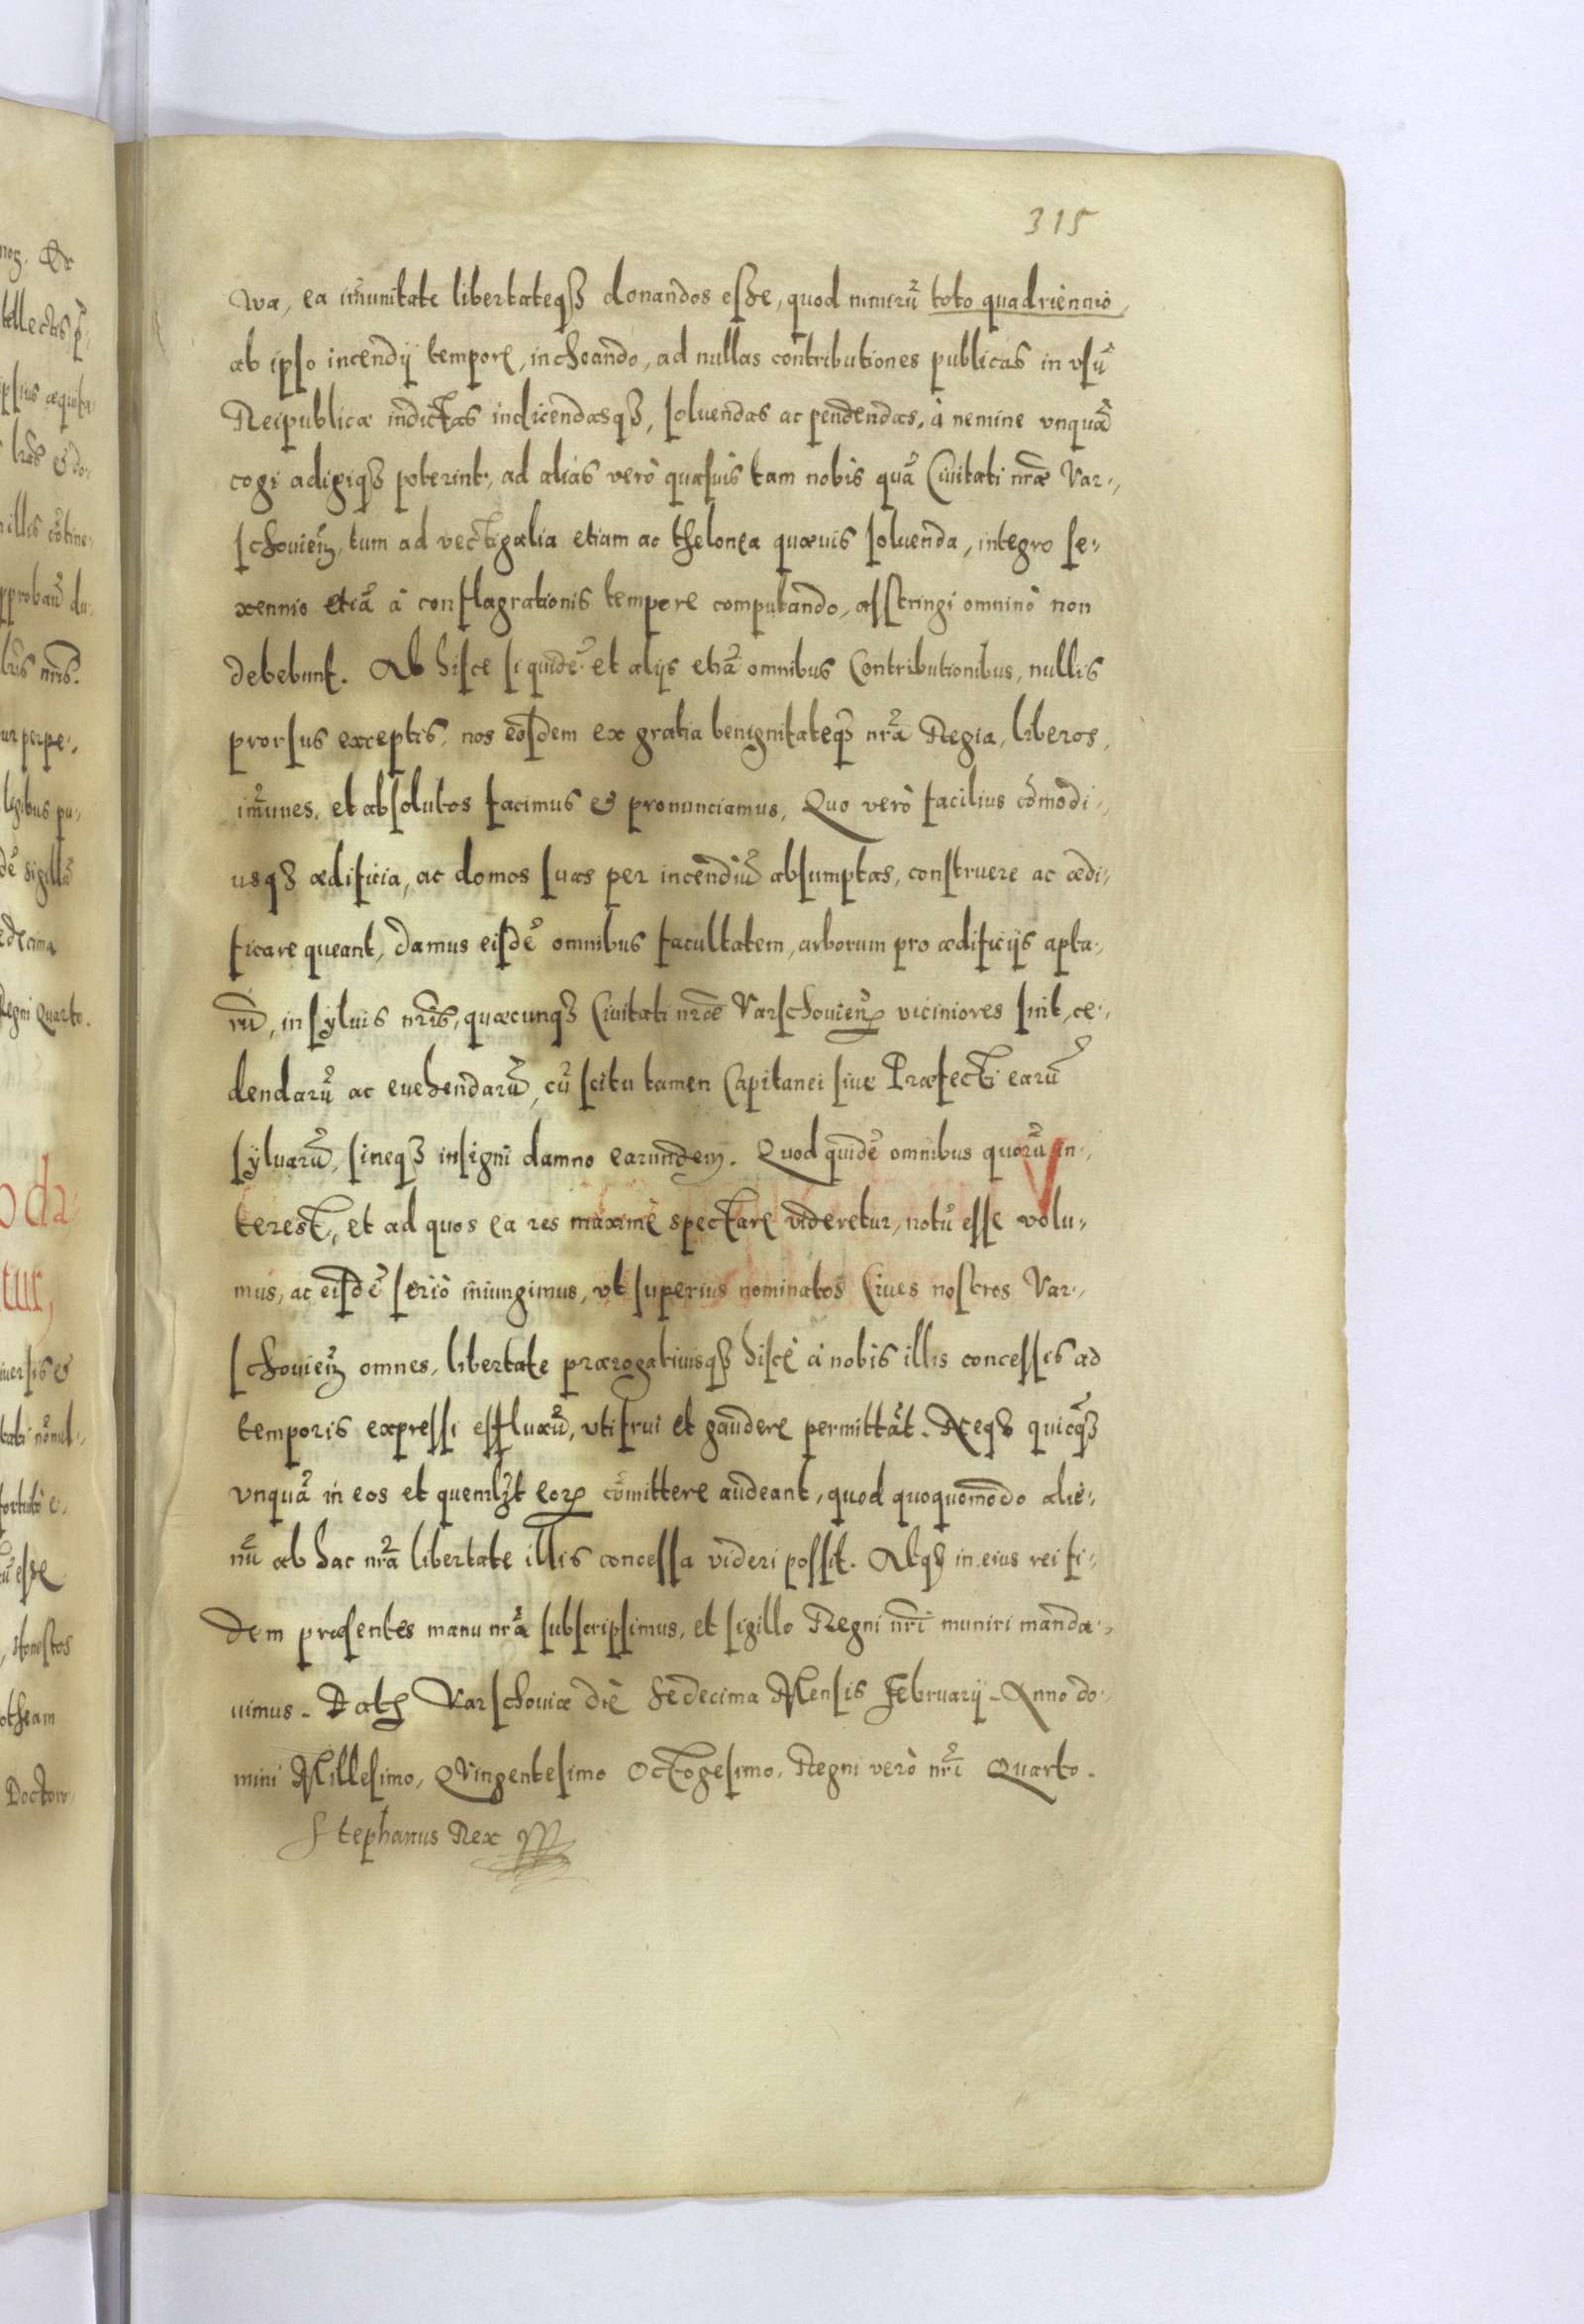 315
wa, ea im̃unitate libertateqꝫ donandos eſſe, quod nimirũ toto quadriennio,
ab ipſo incendij tempore, inchoando, ad nullas contributiones publicas in vſũ
Reipublicæ indictas indicendasqꝫ, ſoluendas ac pendendas, à nemine vnquã
cogi adigiqꝫ poterint, ad alias verò quaſuis tam nobis quã Ciuitati nr̃æ Var-
ſchouieñ, tum ad vectigalia etiam ac thelonea quæuis ſoluenda, integro ſe-
xennio etiã à conflagrationis tempore computando, aſſtringi omninò non
debebunt. Ab hiſce ſiquidẽ et alijs etiã omnibus Contributionibus, nullis
prorſus exceptis, nos eoſdem ex gratia benignitateqꝫ nr̃a Regia, liberos,
im̃unes, et abſolutos facimus & pronunciamus, Quo verò facilius com̃odi-
usqꝫ ædificia, ac domos ſuas per incendiũ abſumptas, conſtruere ac ædi-
ficare queant, damus eiſdẽ omnibus facultatem, arborum pro ædificijs apta-
rũ, in ſyluis nr̃is, quæcunqꝫ Ciuitati nr̃æ Varſchouieñ viciniores ſint, ce-
dendarũ ac euehendarũ, cũ ſcitu tamen Capitanei ſiue Præfecti earũ
ſyluarũ, ſineqꝫ inſigni damno earundem. Quod quidẽ omnibus quorũ in-
tereſt, et ad quos ea res maximè spectare videretur, notũ eſſe volu-
mus, ac eiſdẽ ſeriò iniungimus, vt ſuperius nominatos Ciues noſtros Var-
ſchouieñ omnes, libertate prærogatiuisqꝫ hiſce à nobis illis conceſſis ad
temporis expreſſi effluxũ, vti frui et gaudere permittãt. Neqꝫ quicqꝫ
vnquã in eos et quemlꝫt eoꝝ com̃ittere audeant, quod quoquomodo alie-
nũ ab hac nr̃a libertate illis conceſſa videri poſſit. Atqꝫ in eius rei fi-
dem præſentes manu nr̃a ſubſcripſimus, et ſigillo Regni nr̃i muniri manda-
uimus. Datꝫ Varſchouiæ die ſedecima Menſis Februarij. Anno do-
mini Milleſimo, Quingenteſimo Octogeſimo, Regni verò nr̃i Quarto.
Stephanus Rex